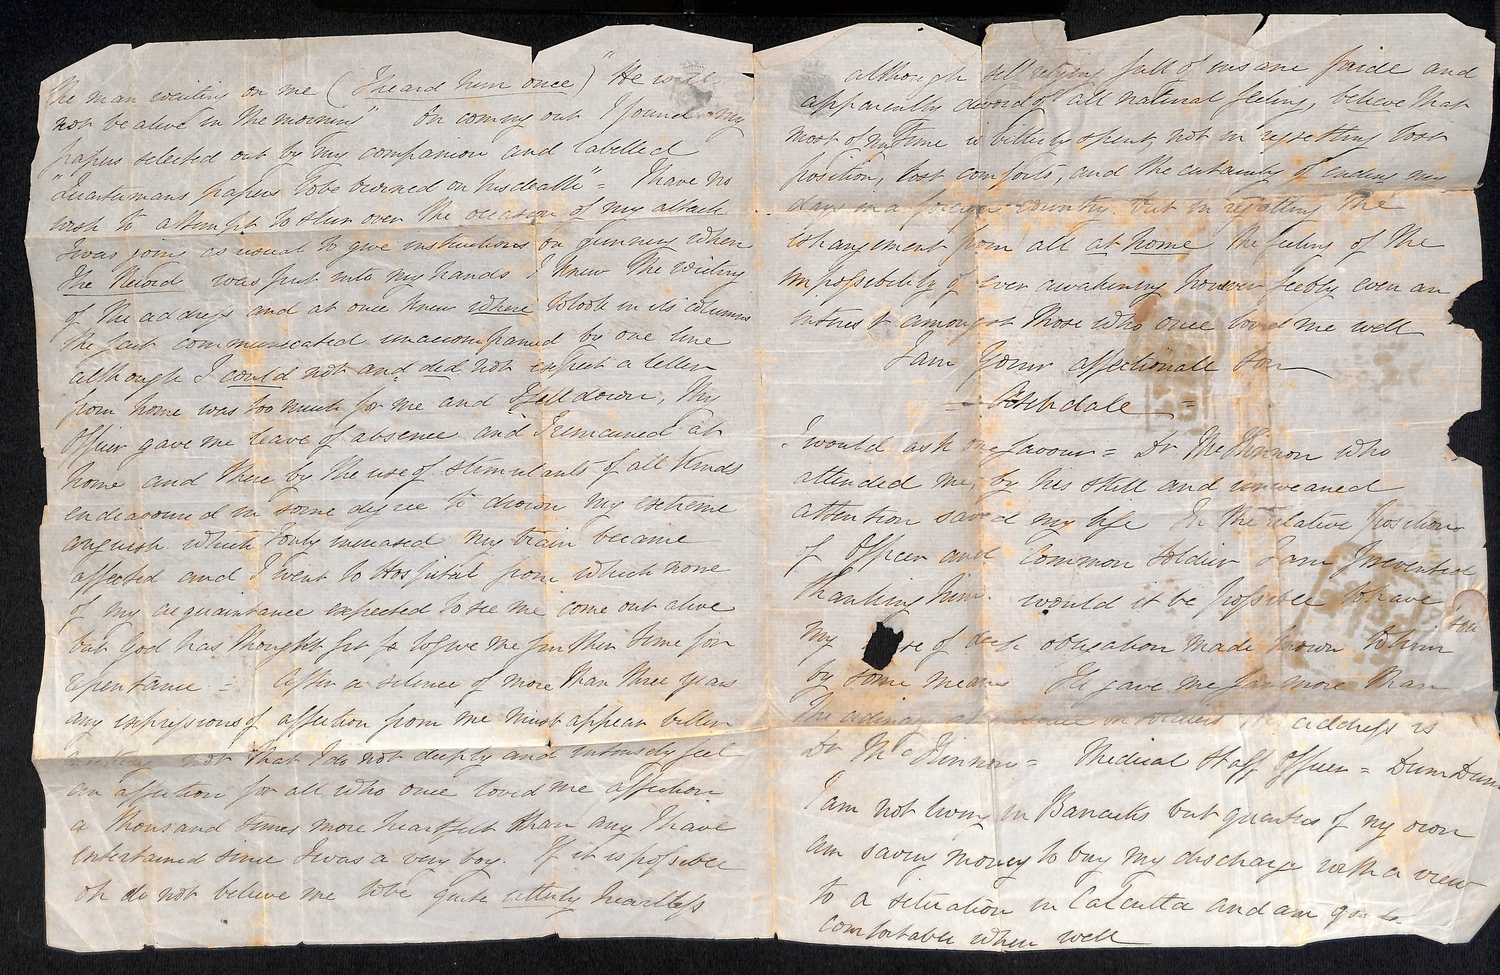 the man waiting on me (I heard him once) "He will
not be alive in the morning" On coming out I found my
papers selected out by my companion and labelled
"Quatermans papers to be burned on his death" = I have no
wish to attempt to slur over the occasion of my attack
I was going as usual to give instructions on gunnery when
The Record was put into my hands I knew the writing
of the address and at once knew where to look in its columns
the fact communicated unaccompanied by one line
although I could not and did not expect a letter
from home was too much for me and I fell down, My
Officer gave me leave of absence and I remained at
home and there by the use of stimulants of all kinds
endeavoured in some degree to drown my extreme
anguish which only increased My brain became
affected and I went to Hospital from which none
of my acquaintance expected to see me come out alive
but God has thought fit to give me further time for
repentance = After a silence of more than three years
any expressions of affection from me must appear bitter
not that I do not deeply and intensely feel
an affection for all who once loved me affection
a thousand times more heartfelt than any I have
entertained since I was a very boy. If it is possible
oh do not believe me to be quite utterly heartless
although self relying full of insane pride and
apparently devoid of all natural feeling, believe that
most of my time is bitterly spent, not in regretting lost
position, lost comforts, and the certainty of ending my
days in a foreign country but in regretting the
estrangement from all at home the feeling of the
impossibility of ever awakening however feebly even an
interest amongst those who once loved me well
I am Your affectionate Son
= Archdale =
I would ask one favour = Dr McKinnon who
attended me, by his skill and unwearied
attention saved my life In the relative position
of Officer and Common Soldier I am prevented
thanking him. would it be possible to have
my of obligation made known to him
by some means He gave me far more than
the ordinary on soldiers address is
Dr McKinnon = Medical Staff Officer = Dum Dum
I am not living in Barracks but quarters of my own
am saving money to buy my discharge with a view
to a situation in Calcutta and am quite
comfortable when well